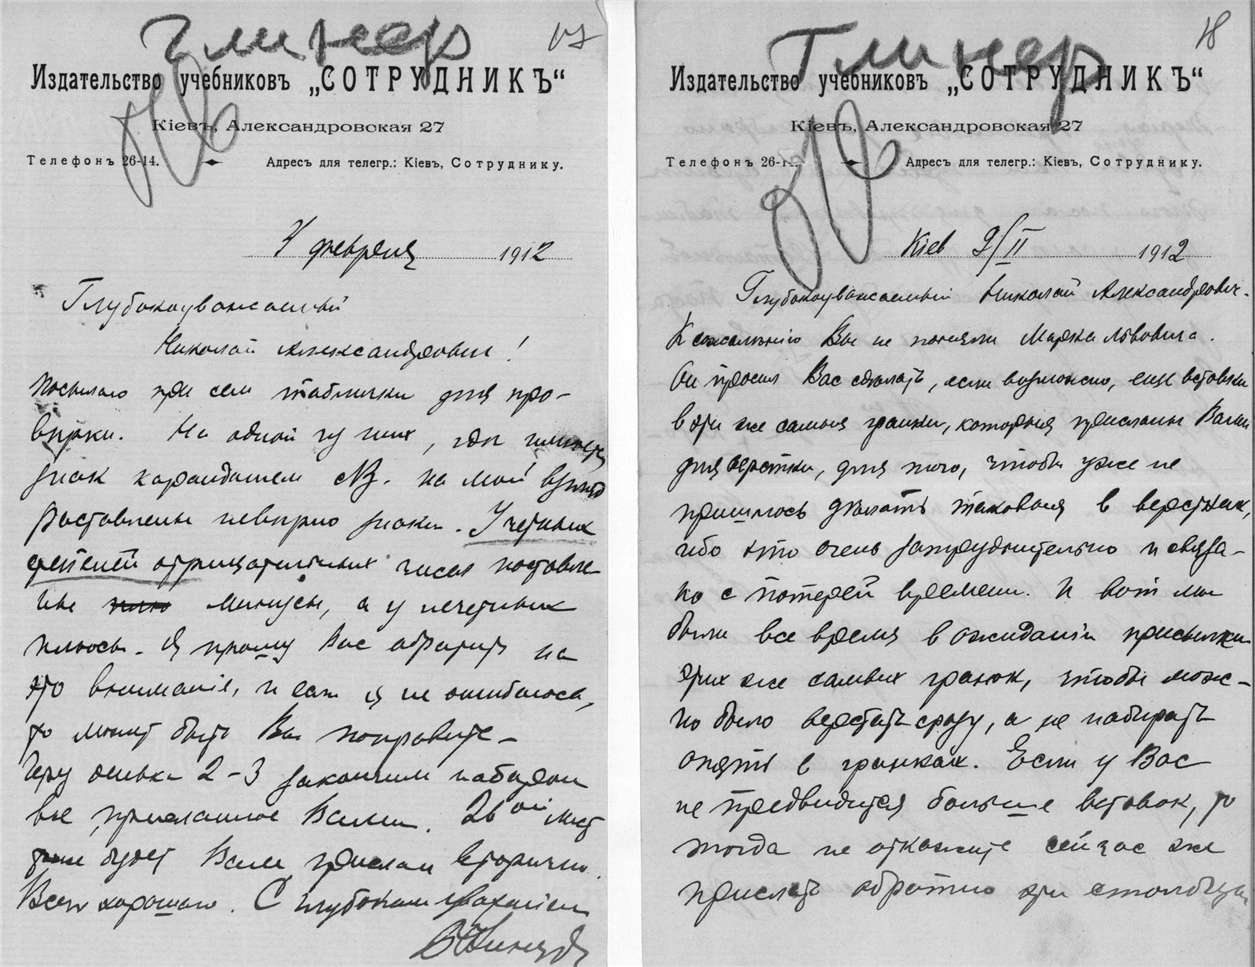 Глинер
17
Издательство учебниковъ „СОТРУДНИКЪ“
Кіевъ, Александровская 27
Телефонъ 26-14. Адресъ для телегр.: Кіевъ, Сотруднику.
4 февраля 1912
Глубокоуважаемый
Николай Александрович!
Посылаю при сем таблички для про-
верки. На одной из них, где имеется
знак карандашем NB. на мой взгляд
расставлены неверно знаки. У четных
степеней отрицательных чисел поставле-
ны минусы, а у нечетных
плюсы. Я прошу Вас обратить на
это внимание, и если я не ошибаюсь,
то может быть Вы поправите-
Через денька 2-3 закончим набором
все, присланное Вами. 2ой лист
будет Вам прислан вторично.
Всего хорошаго. С глубоким уважением
Глинер
18
Издательство учебниковъ „СОТРУДНИКЪ“
Кіевъ, Александровская 27
Телефонъ 26-14. Адресъ для телегр.: Кіевъ, Сотруднику.
Кіев 9/II 1912
Глубокоуважаемый Николай Александрович.
К сожалѣнію Вы не поняли Марка Львовича.
Он просил Вас сделать, если возможно, еще вставки
в эти же самыя гранки, которыя присланы Вами
для верстки, для того, чтобы уже не
пришлось делать таковыя в верстках,
ибо это очень затруднительно и связа-
но с потерей времени. И вот мы
были все время в ожиданіи присылки
этих же самых гранок, чтобы мож-
но было верстать сразу, а не набирать
опять в гранках. Если у Вас
не предвидится больше вставок, то
тогда не откажите сейчас же
прислать обратно эти столбцы